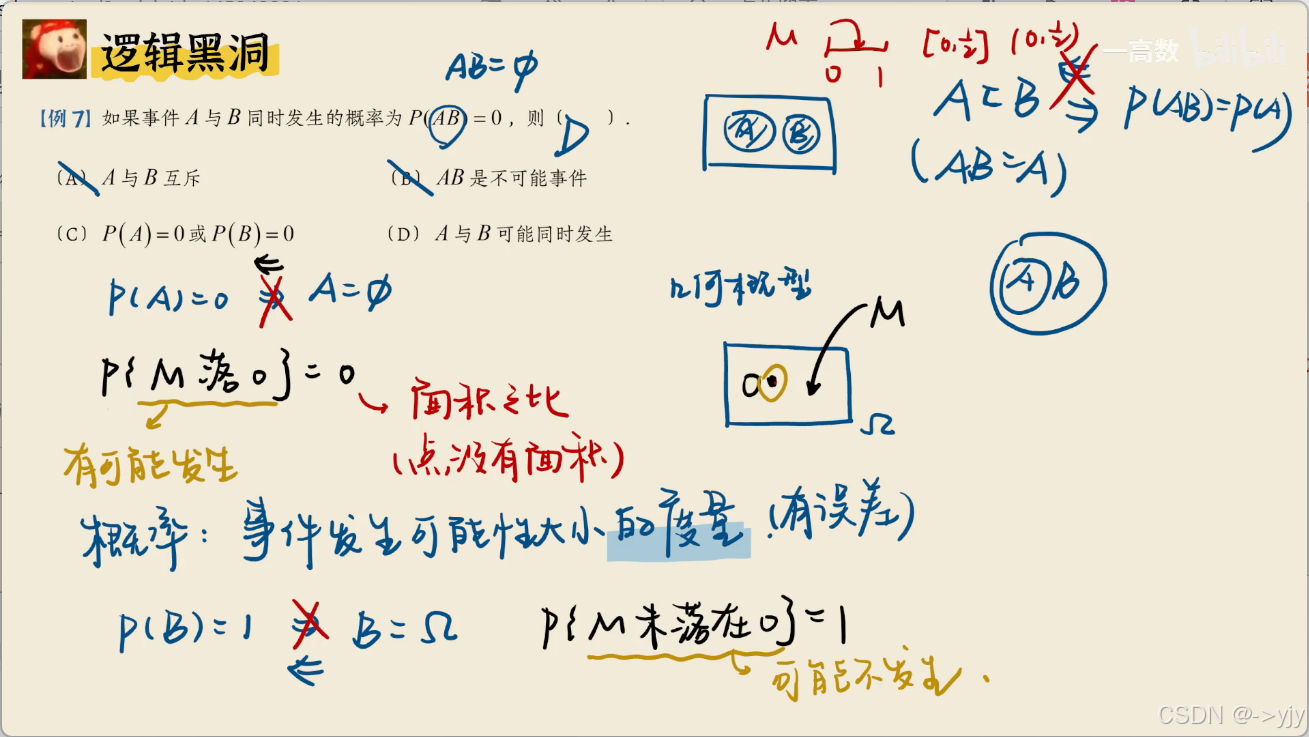 逻辑黑洞
一高数 bilibili
M 0 1 [0,½] (0,½)
AB=∅
A⊂B ⇐ ⇒ P(AB)=P(A)
(AB=A)
A B
【例7】如果事件 A 与 B 同时发生的概率为 P(AB)=0，则〔 D 〕.
〔A〕A 与 B 互斥
〔B〕AB 是不可能事件
〔C〕P(A)=0 或 P(B)=0
〔D〕A 与 B 可能同时发生
A B
P(A)=0 ⇐ ⇒ A=∅
几何概型
M
0
Ω
P{M落0}=0
面积之比
(点没有面积)
有可能发生
概率：事件发生可能性大小的度量.(有误差)
P(B)=1 ⇒ ⇐ B=Ω
P{M未落在0}=1
可能不发生.
CSDN @->yjy